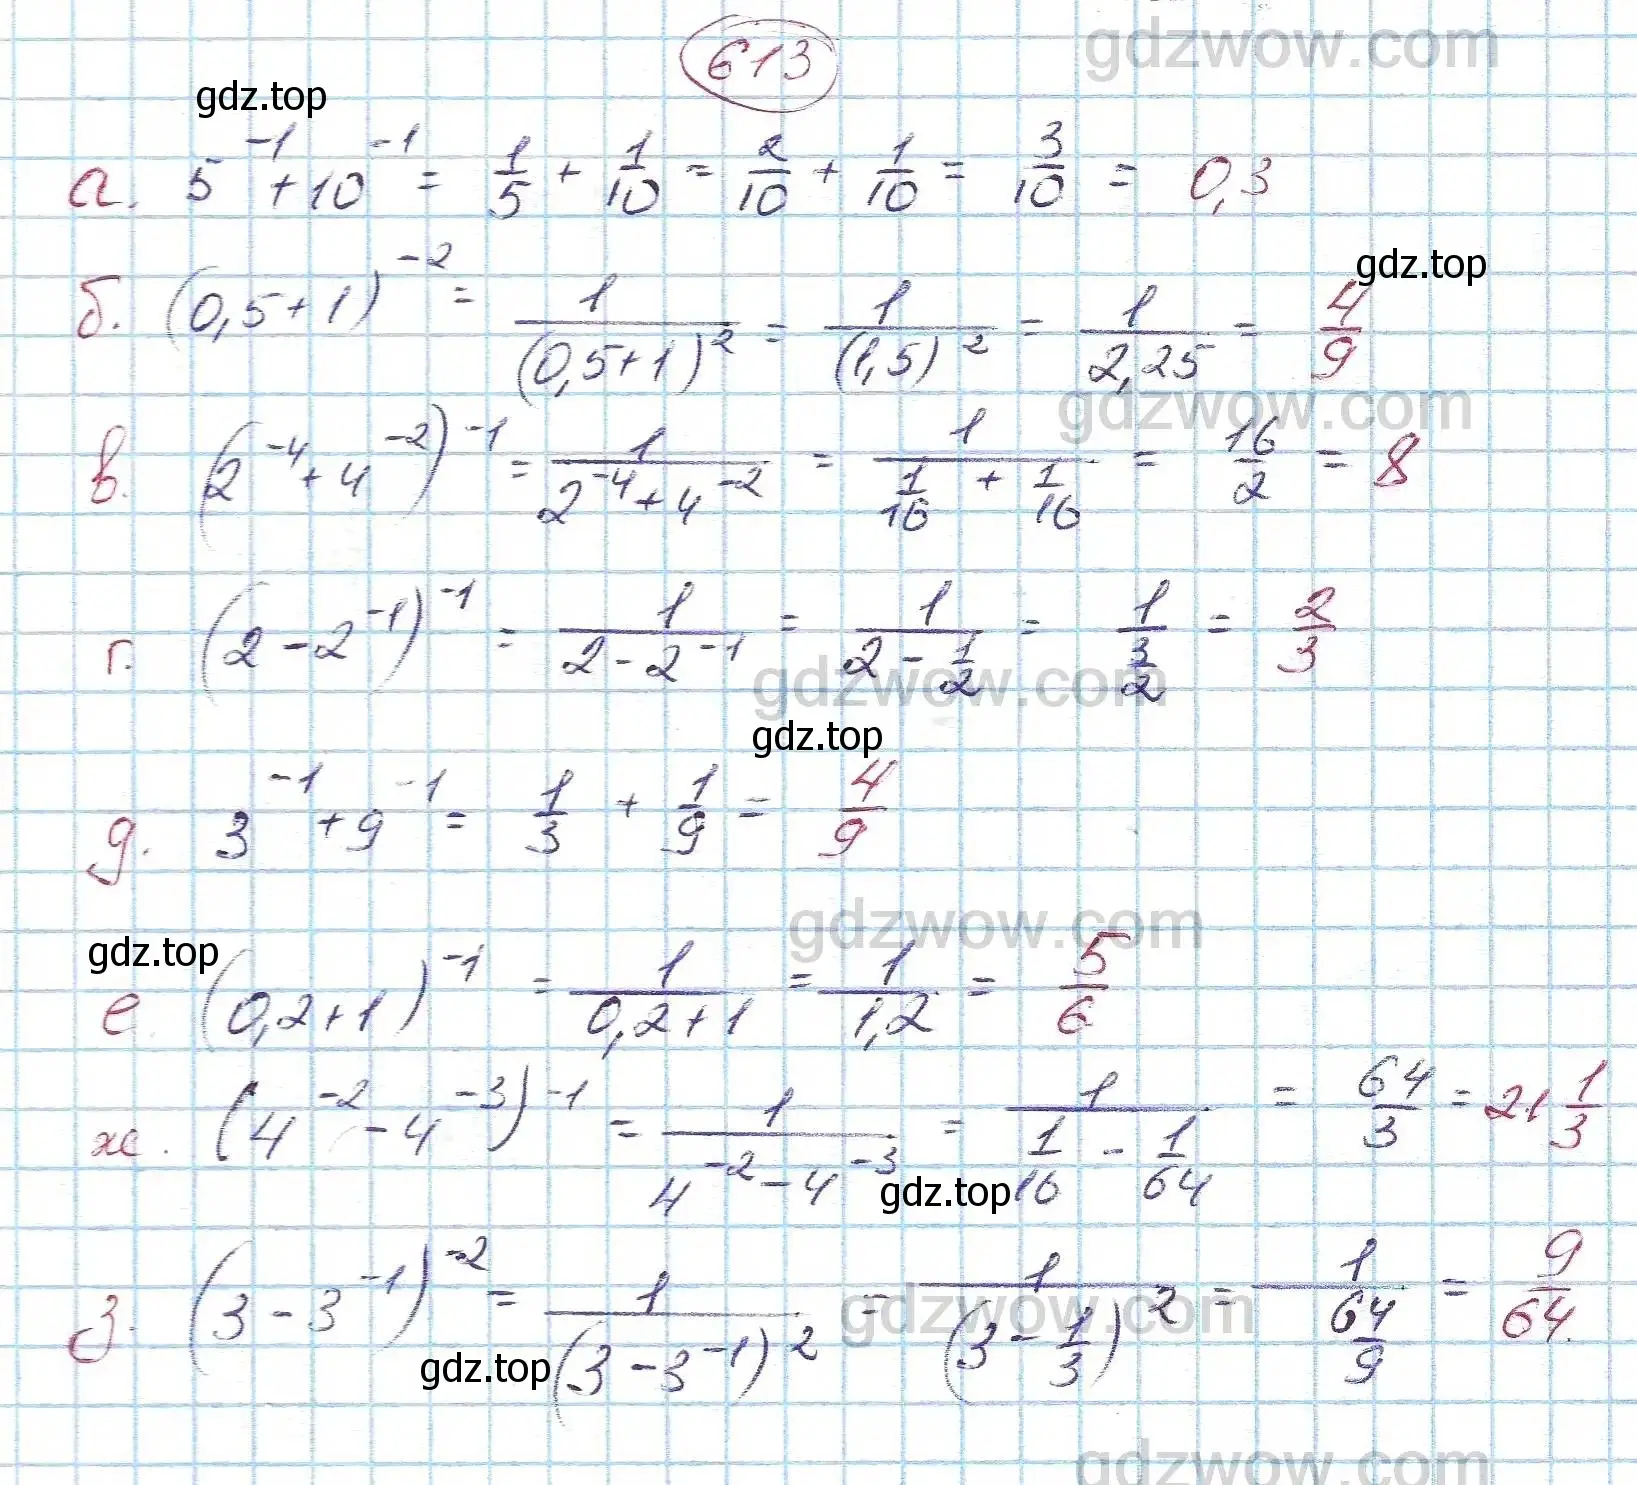 gdzwow.com
613
gdz.top
а. 5^-1 + 10^-1 = 1/5 + 1/10 = 2/10 + 1/10 = 3/10 = 0,3
gdz.top
б. (0,5+1)^-2 = 1/(0,5+1)^2 = 1/(1,5)^2 = 1/2,25 = 4/9
gdzwow.com
в. (2^-4 + 4^-2)^-1 = 1/(2^-4 + 4^-2) = 1/(1/16 + 1/16) = 16/2 = 8
г. (2 - 2^-1)^-1 = 1/(2 - 2^-1) = 1/(2 - 1/2) = 1/(3/2) = 2/3
gdzwow.com
gdz.top
д. 3^-1 + 9^-1 = 1/3 + 1/9 = 4/9
gdzwow.com
gdz.top
е. (0,2+1)^-1 = 1/(0,2+1) = 1/1,2 = 5/6
ж. (4^-2 - 4^-3)^-1 = 1/(4^-2 - 4^-3) = 1/(1/16 - 1/64) = 64/3 = 21 1/3
gdz.top
з. (3 - 3^-1)^-2 = 1/(3 - 3^-1)^2 = 1/(3 - 1/3)^2 = 1/(64/9) = 9/64.
gdzwow.com
gdz.top
gdzwow.com